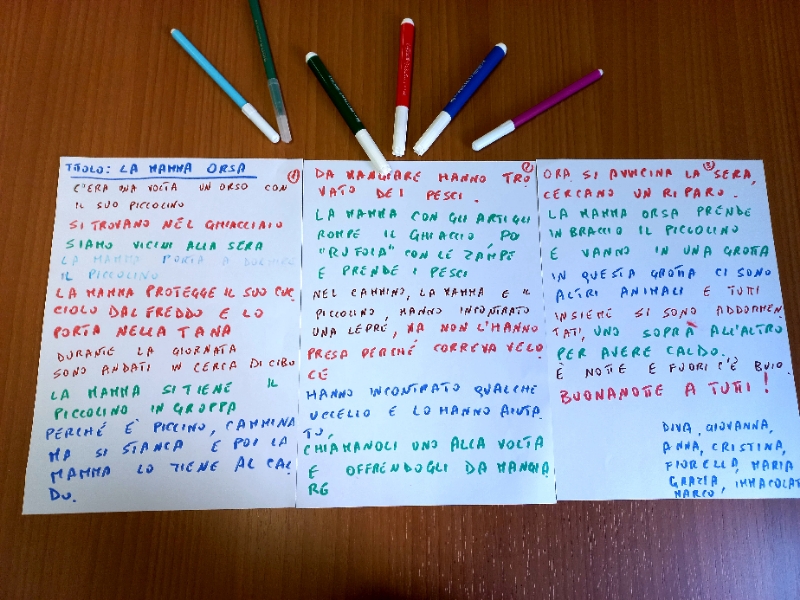 TITOLO: LA MAMMA ORSA
1
C'ERA UNA VOLTA UN ORSO CON
IL SUO PICCOLINO
SI TROVANO NEL GHIACCIAIO
SIAMO VICINI ALLA SERA
LA MAMMA PORTA A DORMIRE
IL PICCOLINO
LA MAMMA PROTEGGE IL SUO CUC
CIOLO DAL FREDDO E LO
PORTA NELLA TANA
DURANTE LA GIORNATA
SONO ANDATI IN CERCA DI CIBO
LA MAMMA SI TIENE IL
PICCOLINO IN GROPPA
PERCHÉ E' PICCINO, CAMMINA
MA SI STANCA E POI LA
MAMMA LO TIENE AL CAL
DO.
2
DA MANGIARE HANNO TRO
VATO DEI PESCI.
LA MAMMA CON GLI ARTIGLI
ROMPE IL GHIACCIO, POI
"RUFOLA" CON LE ZAMPE
E PRENDE I PESCI
NEL CAMMINO, LA MAMMA E IL
PICCOLINO, HANNO INCONTRATO
UNA LEPRE, MA NON L'HANNO
PRESA PERCHÉ CORREVA VELO
CE
HANNO INCONTRATO QUALCHE
UCCELLO E LO HANNO AIUTA
TO,
CHIAMANDOLI UNO ALLA VOLTA
E OFFRENDOGLI DA MANGIA
RE
3
ORA SI AVVICINA LA SERA,
CERCANO UN RIPARO.
LA MAMMA ORSA PRENDE
IN BRACCIO IL PICCOLINO
E VANNO IN UNA GROTTA
IN QUESTA GROTTA CI SONO
ALTRI ANIMALI E TUTTI
INSIEME SI SONO ADDORMEN
TATI, UNO SOPRA ALL'ALTRO
PER AVERE CALDO.
È NOTTE E FUORI C'È BUIO.
BUONANOTTE A TUTTI!
DIVA, GIOVANNA,
ANNA, CRISTINA,
FIORELLA, MARIA
GRAZIA, IMMACOLATA
MARCO,